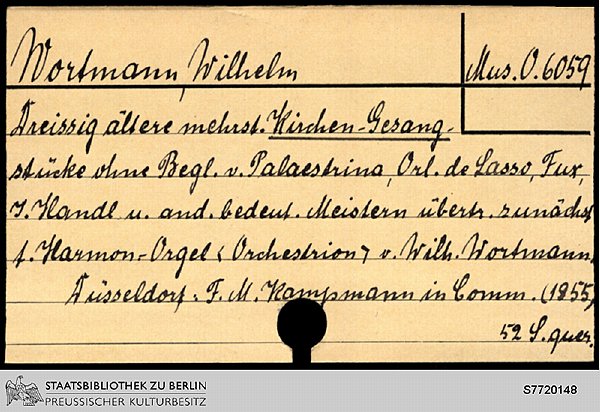 Wortmann, Wilhelm
Mus. O. 6059
Dreissig ältere mehrst. Kirchen-Gesang-
stücke ohne Begl. v. Palaestrina, Orl. de Lasso, Fux,
J. Handl u. and. bedeut. Meistern übertr. zunächst
f. Harmon-Orgel <Orchestrion> v. Wilh. Wortmann,
Düsseldorf: F. M. Kampmann in Comm. (1855)
52 S. quer.
STAATSBIBLIOTHEK ZU BERLIN
PREUSSISCHER KULTURBESITZ
S7720148